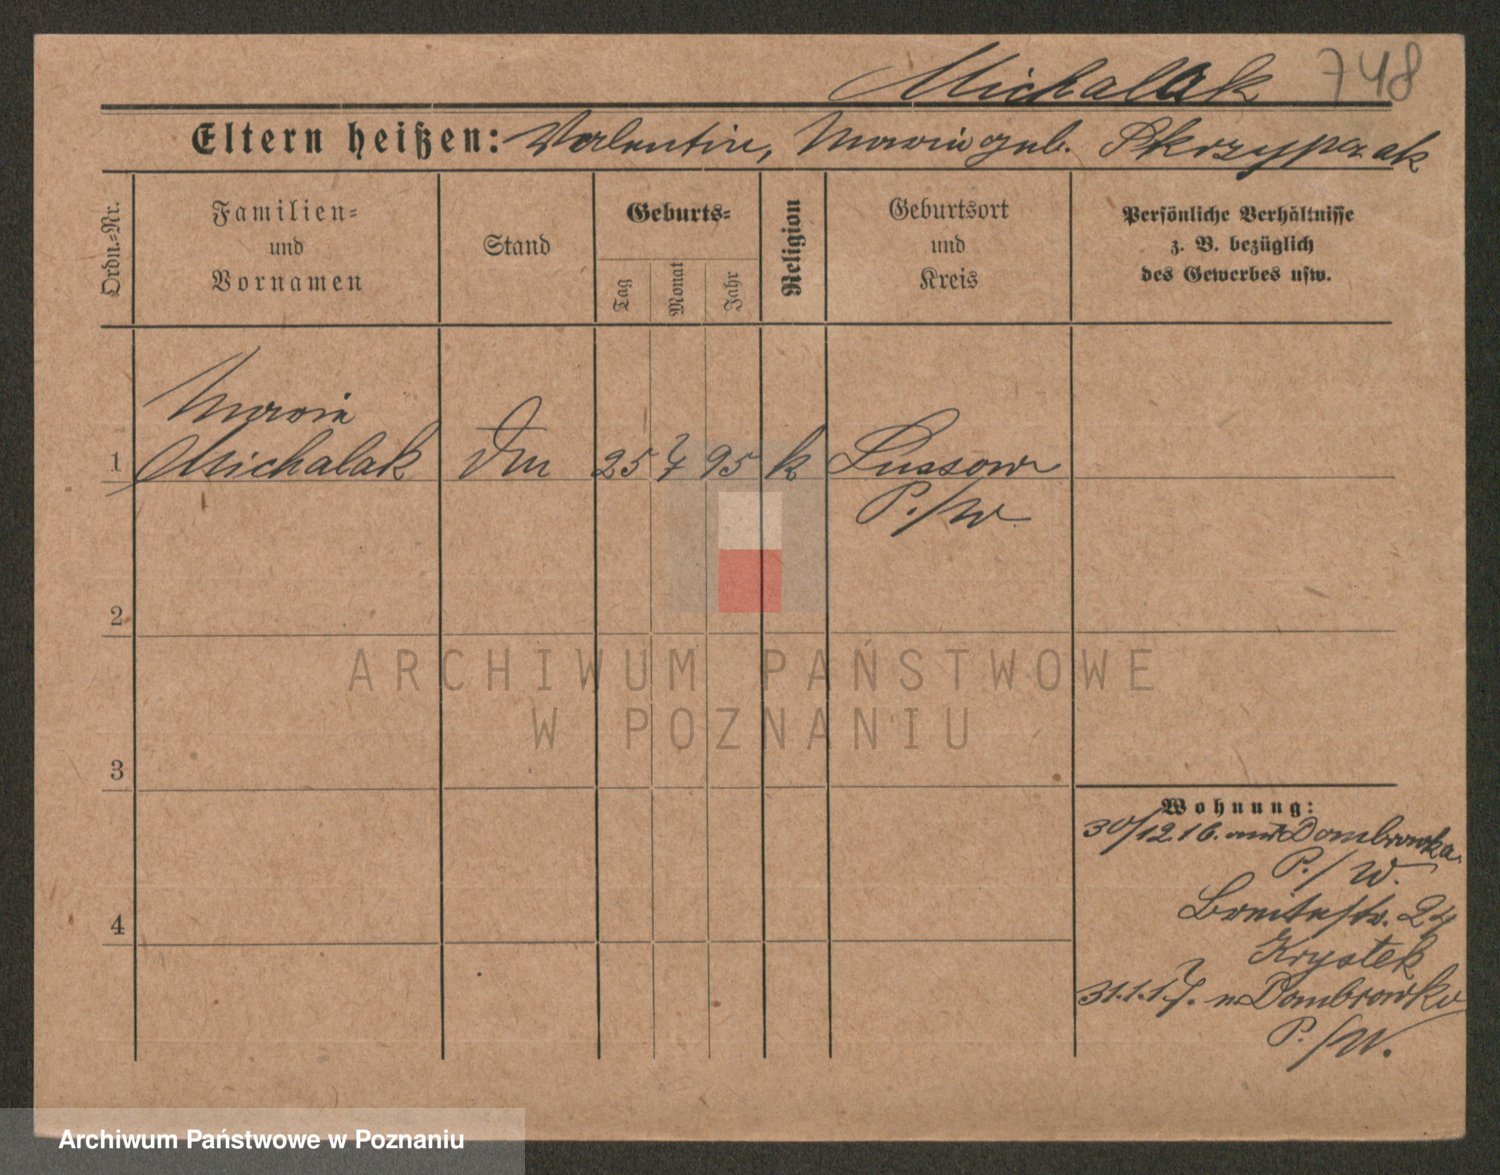 Michalak 748
Eltern heißen: Valentin, Maria geb. Skrzypczak
Ordn.-Nr.
Familien-
und
Vornamen
Stand
Geburts-
Tag
Monat
Jahr
Religion
Geburtsort
und
Kreis
Persönliche Verhältnisse
z. B. bezüglich
des Gewerbes usw.
Maria
1 Michalak Dm 25 7 95 k Lussow
P./W
2
3
4
Wohnung:
30/12.16. aus Dombrowka
P./W.
Breitestr. 24
Krystek
31.1.17. n Dombrowka
P./W.
ARCHIWUM PAŃSTWOWE
W POZNANIU
Archiwum Państwowe w Poznaniu